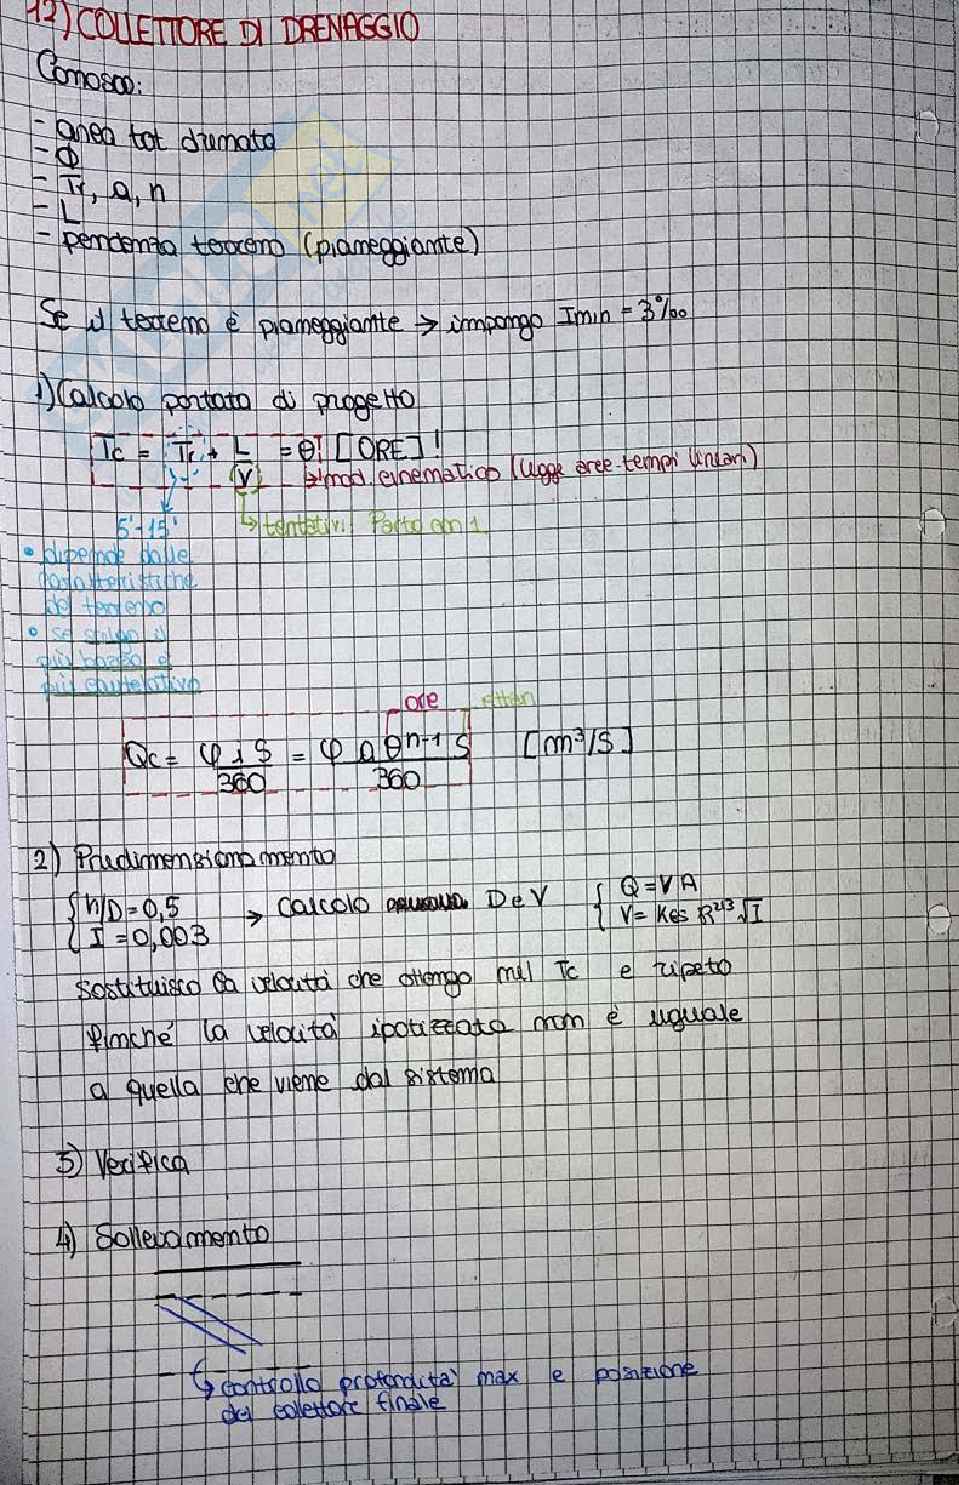 12) COLLETTORE DI DRENAGGIO
Conosco:
- area tot drenata
- Φ
- Tr, a, n
- L
- pendenza terreno (pianeggiante)
Se il terreno è pianeggiante → impongo Imin = 3‰
1) Calcolo portata di progetto
Tc = Tr + L/V = θ [ORE]!
↳ mod. cinematico (legge aree-tempi lineari)
↳ tentativi! Parto con 1
5'-15'
• dipende dalle
caratteristiche
del terreno
• se scelgo il
più basso è
più cautelativo
ore ettari
Qc = φ i S / 360 = φ a θ^(n-1) S / 360 [m³/s]
2) Predimensionamento
{ h/D = 0,5
{ I = 0,003
→ calcolo D e V
{ Q = VA
{ V = Kes R^2/3 √I
sostituisco la velocità che ottengo nel Tc e ripeto
finché la velocità ipotizzata non è uguale
a quella che viene dal sistema
3) Verifica
4) Sollevamento
↳ controllo profondità max e posizione
del collettore finale